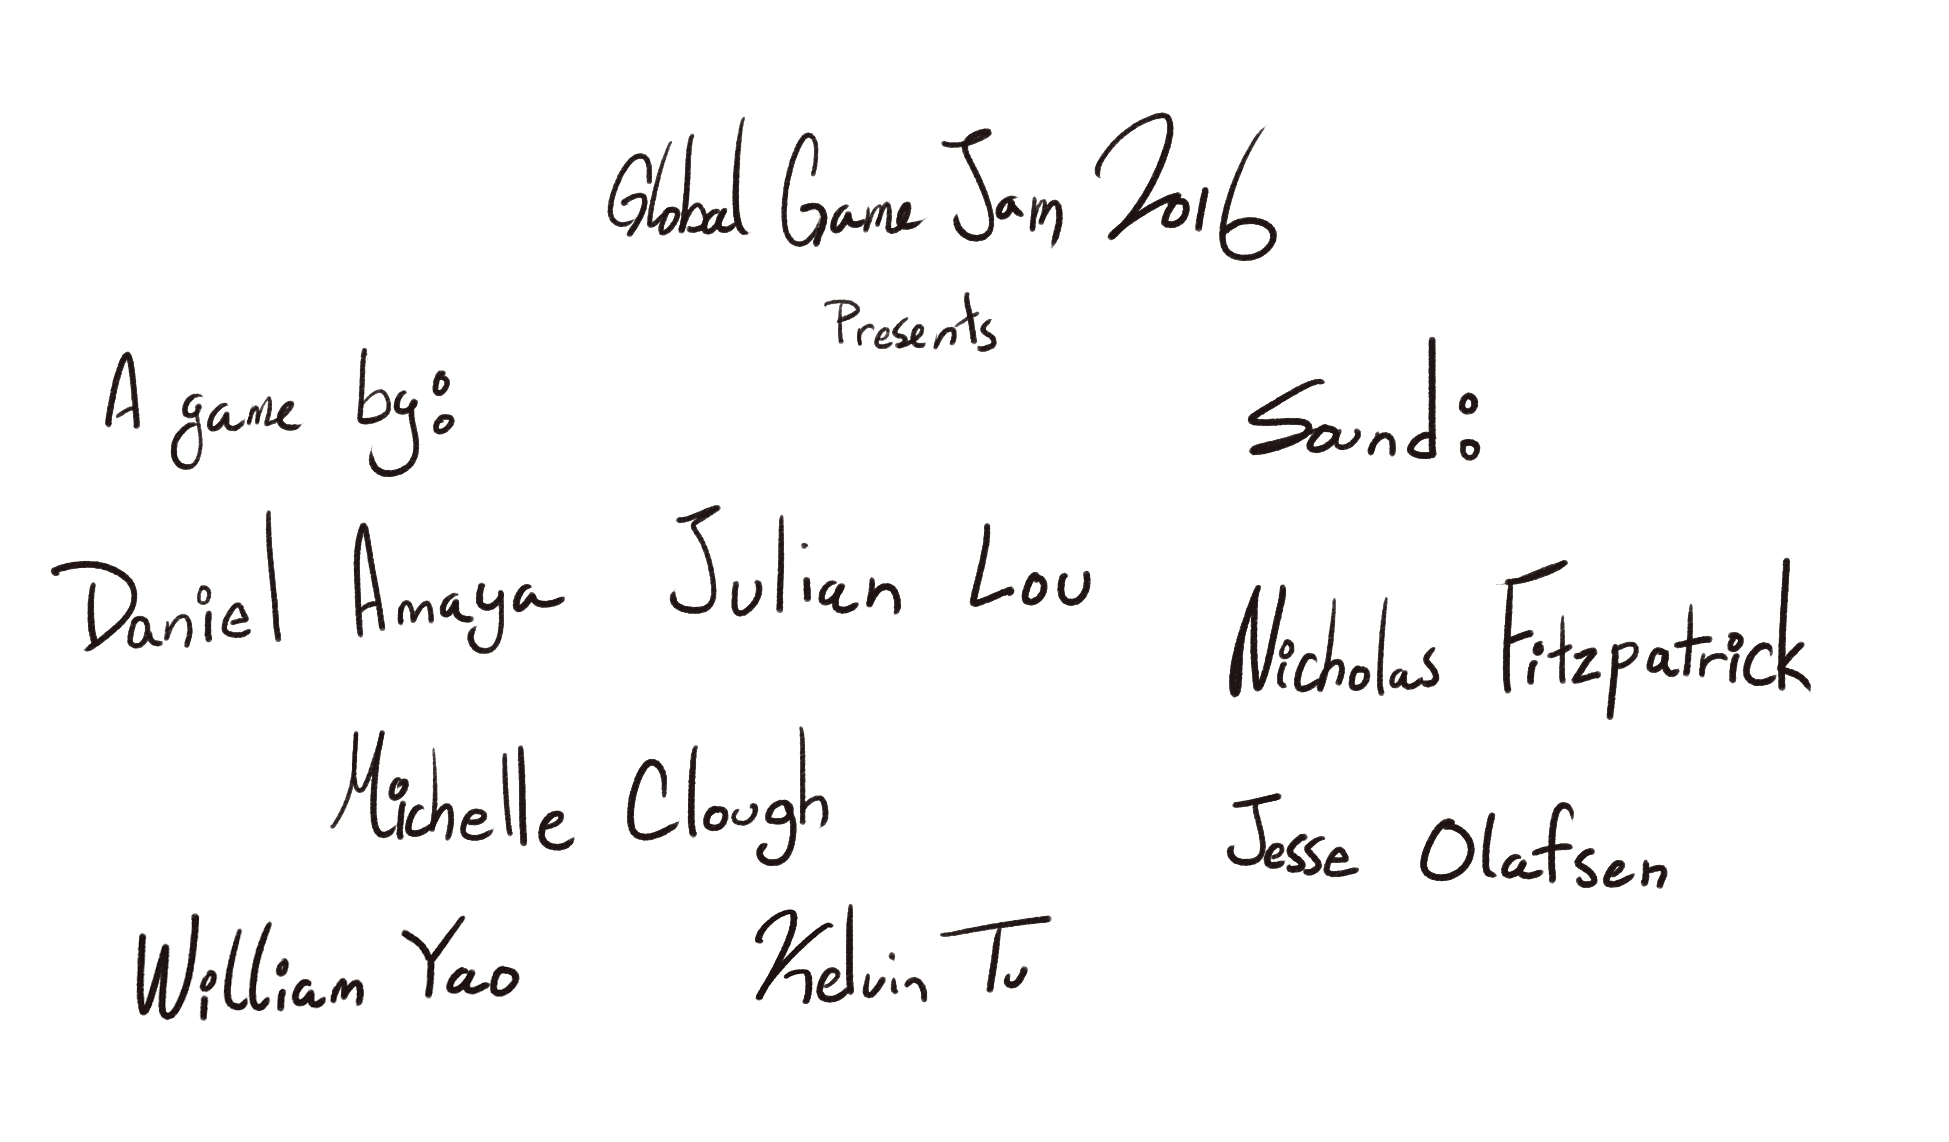 Global Game Jam 2016
Presents
A game by:
Daniel Amaya Julian Lou
Michelle Clough
William Yao Kelvin Tu
Sound:
Nicholas Fitzpatrick
Jesse Olafsen